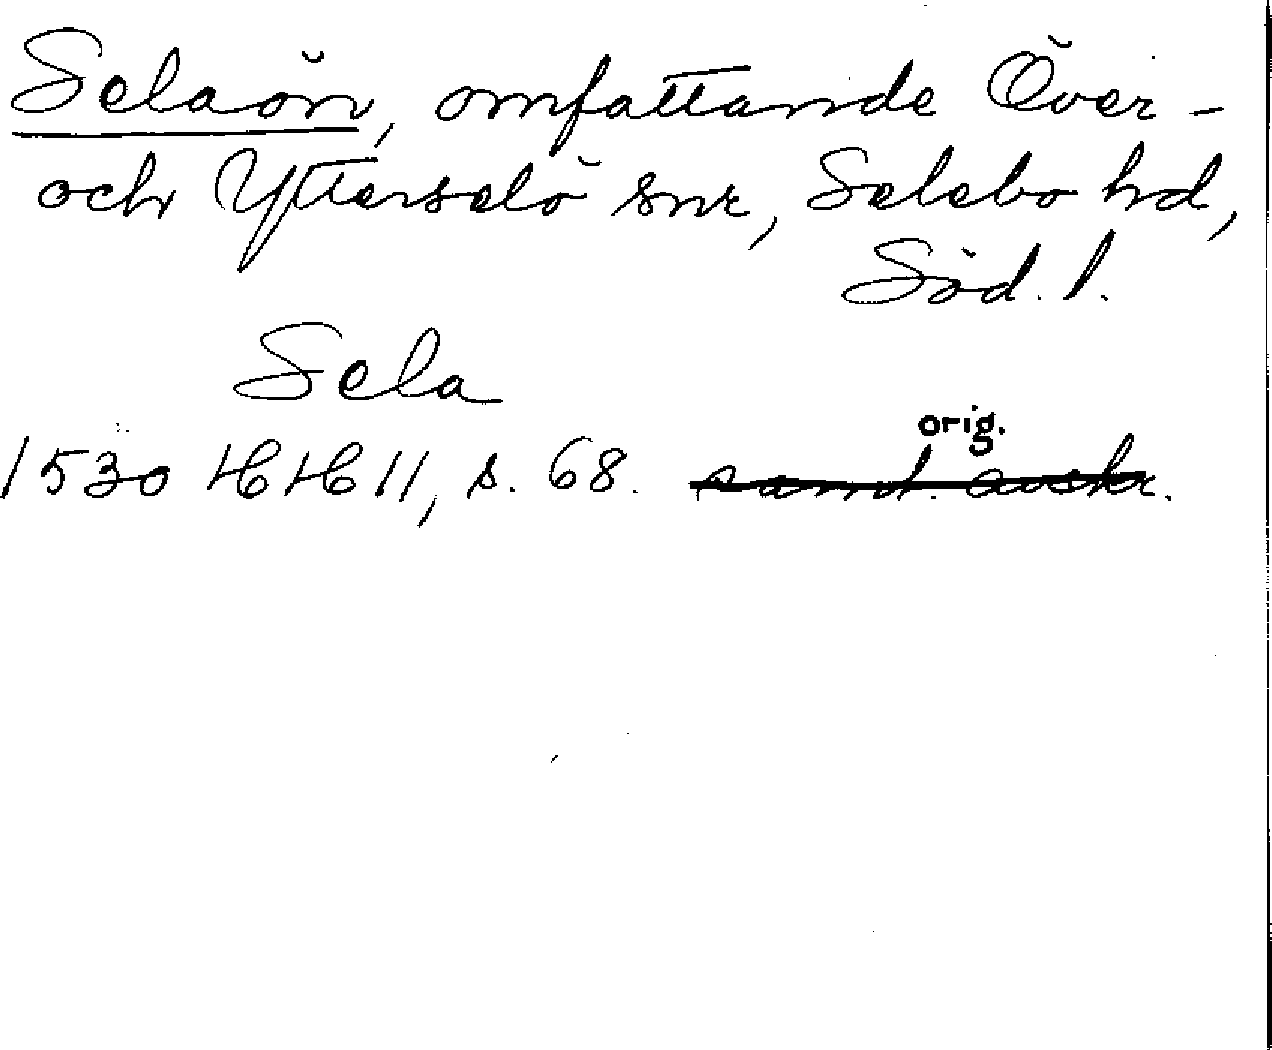 Selaön, omfattande Över-
och Ytterselö snr, Selebo hd,
Söd. l.
Sela
orig.
1530 HH 11, s. 68. samt. avskr.